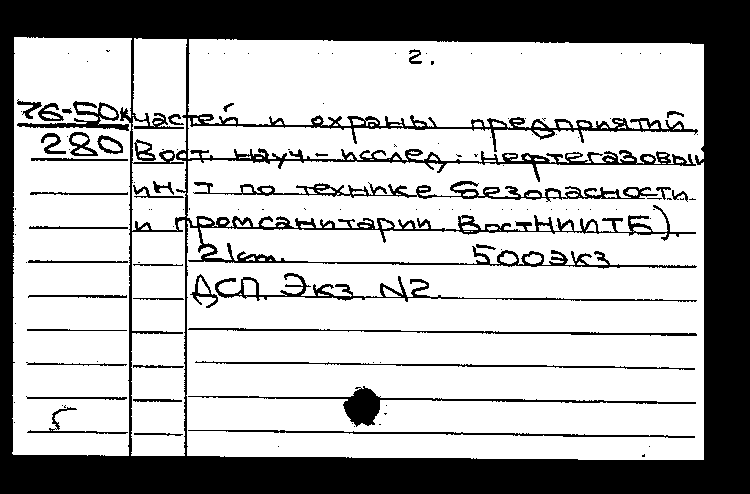 2.
76-50к частей и охраны предприятий.
280 Вост. науч.-исслед. нефтегазовый
ин-т по технике безопасности
и промсанитарии. ВостНИИТБ).
21 cm. 500 экз.
ДСП. Экз. N2.
5